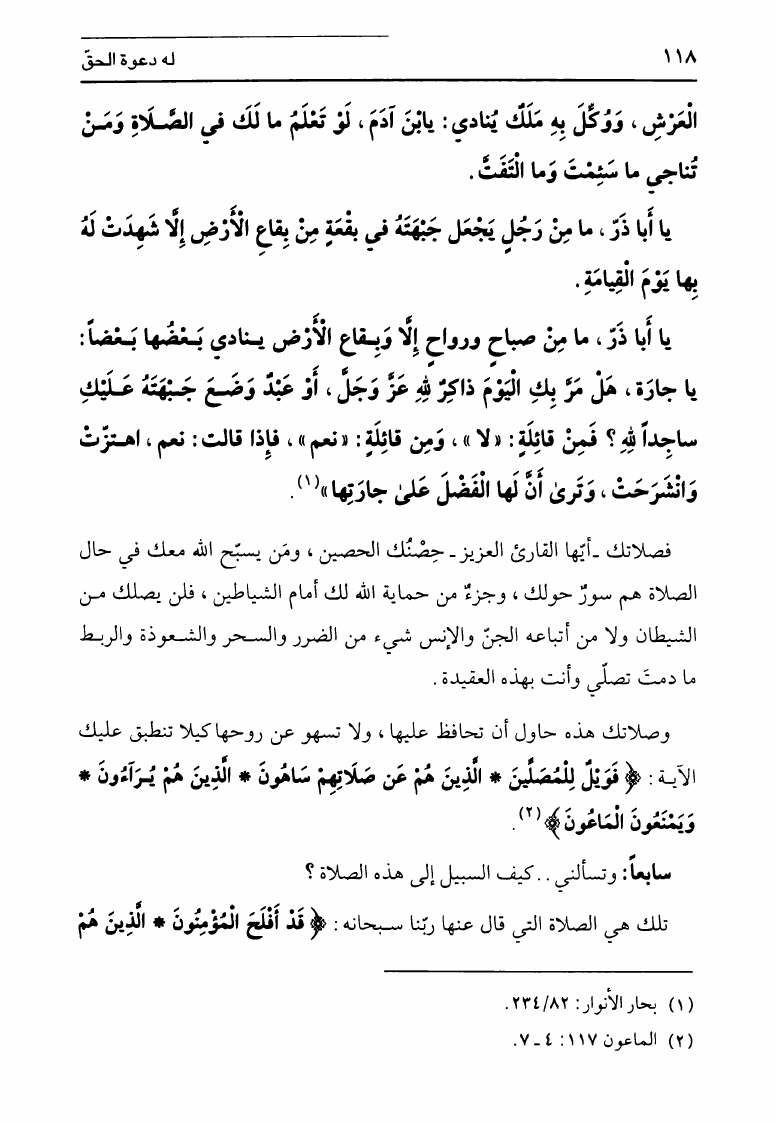 ١١٨
له دعوة الحقّ
الْعَرْشِ ، وَوُكِّلَ بِهِ مَلَكٌ يُنادي : يابْنَ آدَمَ ، لَوْ تَعْلَمُ ما لَكَ في الصَّلَاةِ وَمَنْ
تُناجي ما سَئِمْتَ وَما الْتَفَتَّ .
يا أَبا ذَرّ ، ما مِنْ رَجُلٍ يَجْعَل جَبْهَتَهُ في بقْعَةٍ مِنْ بِقاعِ الْأَرْضِ إِلَّا شَهِدَتْ لَهُ
بِها يَوْمَ الْقِيامَةِ .
يا أَبا ذَرّ ، ما مِنْ صباحٍ ورواحٍ إِلَّا وَبِقاع الْأَرْض ينادي بَعْضُها بَعْضاً :
يا جارَة ، هَلْ مَرَّ بِكِ الْيَوْمَ ذاكِرٌ لِلهِ عَزَّ وَجَلَّ ، أَوْ عَبْدٌ وَضَعَ جَبْهَتَهُ عَلَيْكِ
ساجِداً لِلهِ ؟ فَمِنْ قائِلَةٍ : «لا» ، وَمِن قائِلَةٍ : «نعم» ، فإِذا قالت : نعم ، اهتزّتْ
وَانْشَرَحَتْ ، وَتَرىٰ أَنَّ لَها الْفَضْلَ عَلىٰ جارَتِها»(١) .
فصلاتك ـ أيّها القارئ العزيز ـ حِصْنُك الحصين ، ومَن يسبّح الله معك في حال
الصلاة هم سورٌ حولك ، وجزءٌ من حماية الله لك أمام الشياطين ، فلن يصلك من
الشيطان ولا من أتباعه الجنّ والإنس شيء من الضرر والسحر والشعوذة والربط
ما دمتَ تصلّي وأنت بهذه العقيدة .
وصلاتك هذه حاول أن تحافظ عليها ، ولا تسهو عن روحها كيلا تنطبق عليك
الآية : ﴿ فَوَيْلٌ لِلْمُصَلِّينَ * الَّذِينَ هُمْ عَن صَلَاتِهِمْ سَاهُونَ * الَّذِينَ هُمْ يُرَآءُونَ *
وَيَمْنَعُونَ الْمَاعُونَ ﴾(٢) .
سابعاً : وتسألني . . كيف السبيل إلى هذه الصلاة ؟
تلك هي الصلاة التي قال عنها ربّنا سبحانه : ﴿ قَدْ أَفْلَحَ الْمُؤْمِنُونَ * الَّذِينَ هُمْ
(١) بحار الأنوار : ٢٣٤/٨٢ .
(٢) الماعون ١١٧ : ٤ ـ ٧ .